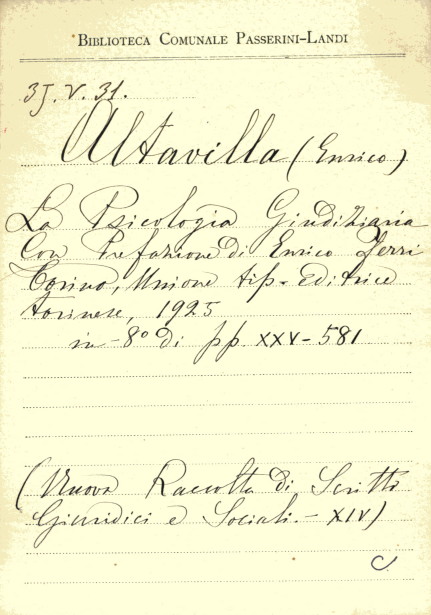 BIBLIOTECA COMUNALE PASSERINI-LANDI
3J. V. 31.
Altavilla (Enrico)
La Psicologia Giudiziaria
Con Prefazione di Enrico Ferri
Torino, Unione tip-editrice
torinese, 1925
in-8° di pp. XXV-581
(Nuova Raccolta di Scritti
Giuridici e Sociali.-XIV)
C